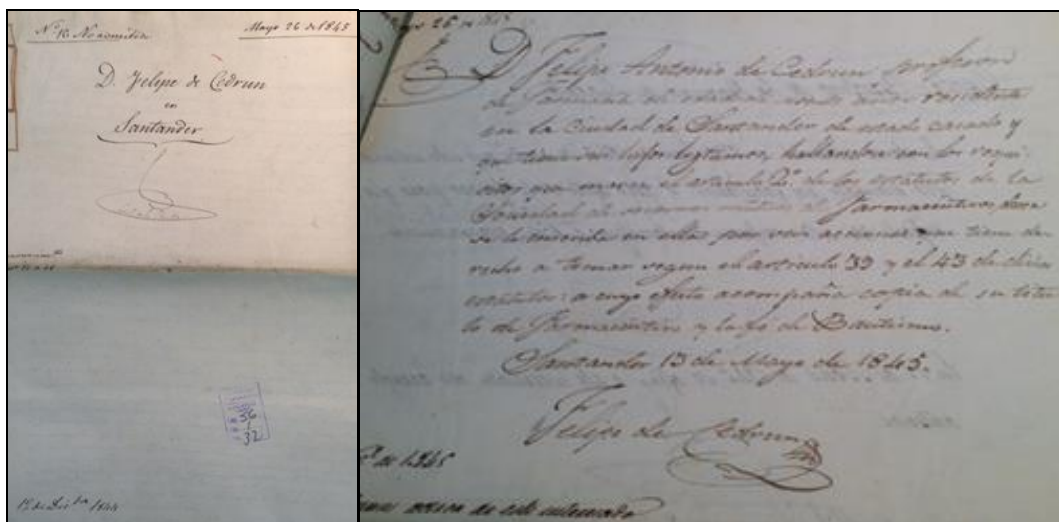 Nº 16. No admitido
Mayo 26 de 1845
D. Felipe de Cedrun
en
Santander
36
32
1845
Mayo 26 de 1845
D. Felipe Antonio de Cedrun profesor
de Farmacia residente
en la Ciudad de Santander de estado casado y
que tiene hijos legitimos, hallandose con los requi-
sitos que marca el articulo 2º. de los estatutos de la
Sociedad de socorros mutuos de Farmaceuticos, desea
se le conceda en ella las acciones que tiene de-
recho a tomar segun el articulo 39 y el 43 de dichos
estatutos: a cuyo efecto acompaña copia de su titu-
lo de Farmaceutico y la fe de Bautismo.
Santander 13 de Mayo de 1845.
Felipe de Cedrun
de 1845
de este interesado